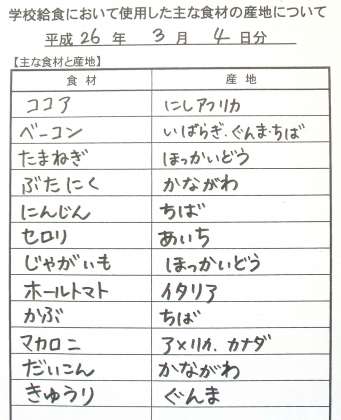 学校給食において使用した主な食材の産地について
平成 26 年 3 月 4 日分
【主な食材と産地】
食材 産地
ココア にしアフリカ
ベーコン いばらぎ、ぐんま・ちば
たまねぎ ほっかいどう
ぶたにく かながわ
にんじん ちば
セロリ あいち
じゃがいも ほっかいどう
ホールトマト イタリア
かぶ ちば
マカロニ アメリカ、カナダ
だいこん かながわ
きゅうり ぐんま